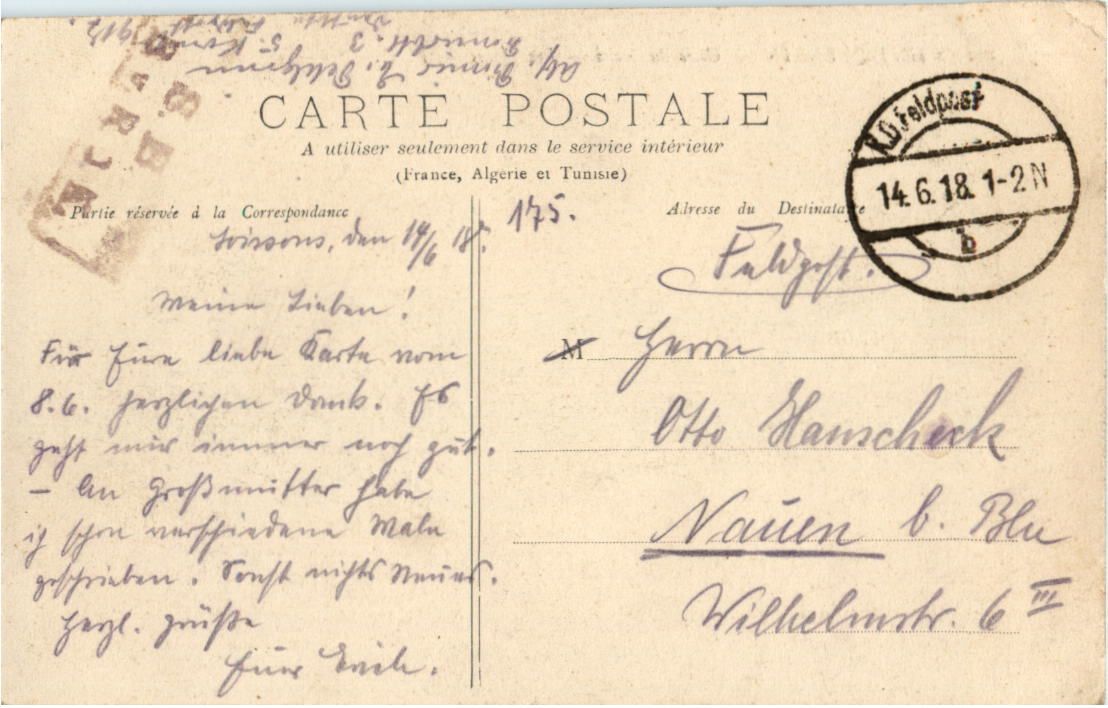 CARTE POSTALE
A utiliser seulement dans le service intérieur
(France, Algérie et Tunisie)
K.D. Feldpost
14.6.18. 1-2 N
b
Partie réservée à la Correspondance
175.
Adresse du Destinataire
Soissons, den 14/6 18.
Meine Lieben!
Für Eure liebe Karte vom
8.6. herzlichen Dank. Es
geht mir immer noch gut.
– An Großmutter habe
ich schon verschiedene Male
geschrieben. Sonst nichts Neues.
Herzl. Grüße
Euer Erich.
Feldpost.
M Herrn
Otto Hanscheck
Nauen b. Bln
Wilhelmstr. 6 III